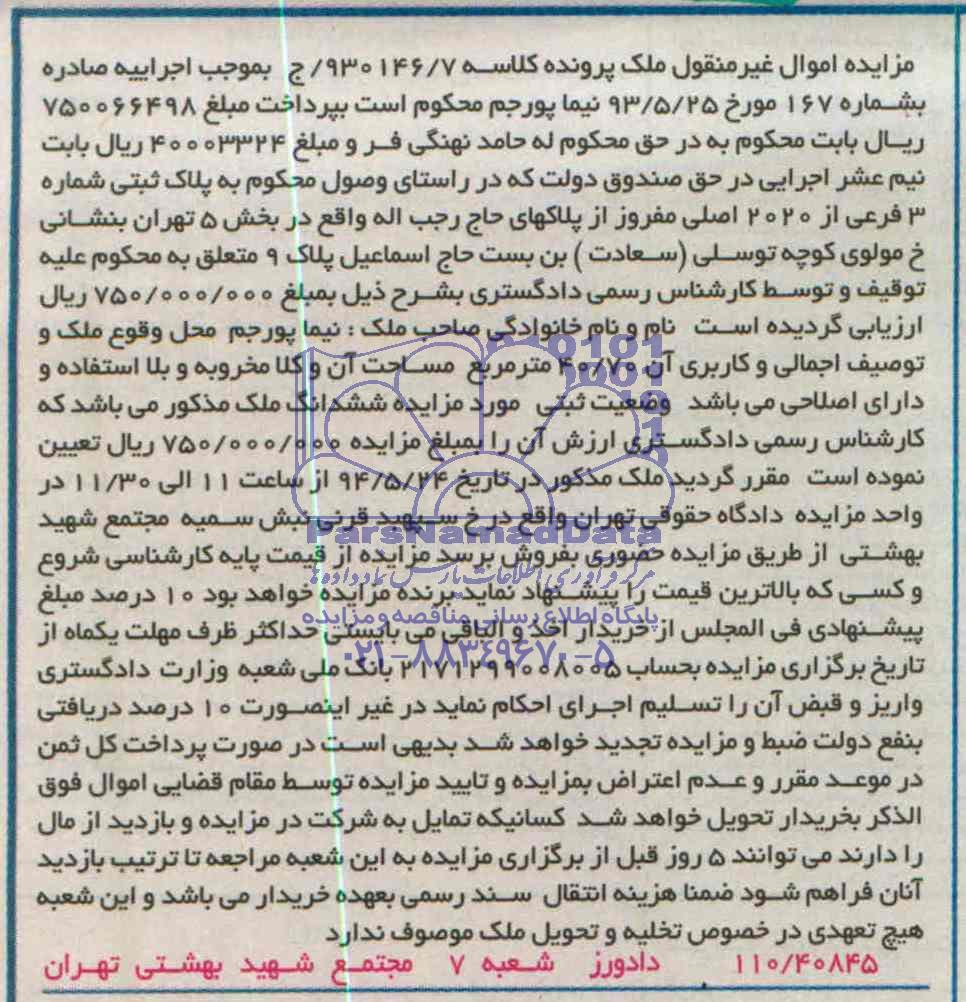 مزایده اموال غیرمنقول ملک پرونده کلاسه ۹۳۰۱۴۶/۷/ ج بموجب اجراییه صادره
بشماره ۱۶۷ مورخ ۹۳/۵/۲۵ نیما پورجم محکوم است بپرداخت مبلغ ۷۵۰۰۶۶۴۹۸
ریال بابت محکوم به در حق محکوم له حامد نهنگی فر و مبلغ ۴۰۰۰۳۳۲۴ ریال بابت
نیم عشر اجرایی در حق صندوق دولت که در راستای وصول محکوم به پلاک ثبتی شماره
۳ فرعی از ۲۰۲۰ اصلی مفروز از پلاکهای حاج رجب اله واقع در بخش ۵ تهران بنشانی
خ مولوی کوچه توسلی (سعادت) بن بست حاج اسماعیل پلاک ۹ متعلق به محکوم علیه
توقیف و توسط کارشناس رسمی دادگستری بشرح ذیل بمبلغ ۷۵۰/۰۰۰/۰۰۰ ریال
ارزیابی گردیده است نام و نام خانوادگی صاحب ملک : نیما پورجم محل وقوع ملک و
توصیف اجمالی و کاربری آن ۴۰/۷۰ مترمربع مساحت آن و کلا مخروبه و بلا استفاده و
دارای اصلاحی می باشد وضعیت ثبتی مورد مزایده ششدانگ ملک مذکور می باشد که
کارشناس رسمی دادگستری ارزش آن را بمبلغ مزایده ۷۵۰/۰۰۰/۰۰۰ ریال تعیین
نموده است مقرر گردید ملک مذکور در تاریخ ۹۴/۵/۲۴ از ساعت ۱۱ الی ۱۱/۳۰ در
واحد مزایده دادگاه حقوقی تهران واقع در خ سپهبد قرنی نبش سمیه مجتمع شهید
بهشتی از طریق مزایده حضوری بفروش برسد مزایده از قیمت پایه کارشناسی شروع
و کسی که بالاترین قیمت را پیشنهاد نماید برنده مزایده خواهد بود ۱۰ درصد مبلغ
پیشنهادی فی المجلس از خریدار اخذ و الباقی می بایستی حداکثر ظرف مهلت یکماه از
تاریخ برگزاری مزایده بحساب ۲۱۷۱۲۹۹۰۰۸۰۰۵ بانک ملی شعبه وزارت دادگستری
واریز و قبض آن را تسلیم اجرای احکام نماید در غیر اینصورت ۱۰ درصد دریافتی
بنفع دولت ضبط و مزایده تجدید خواهد شد بدیهی است در صورت پرداخت کل ثمن
در موعد مقرر و عدم اعتراض بمزایده و تایید مزایده توسط مقام قضایی اموال فوق
الذکر بخریدار تحویل خواهد شد کسانیکه تمایل به شرکت در مزایده و بازدید از مال
را دارند می توانند ۵ روز قبل از برگزاری مزایده به این شعبه مراجعه تا ترتیب بازدید
آنان فراهم شود ضمنا هزینه انتقال سند رسمی بعهده خریدار می باشد و این شعبه
هیچ تعهدی در خصوص تخلیه و تحویل ملک موصوف ندارد
۱۱۰/۴۰۸۴۵ دادورز شعبه ۷ مجتمع شهید بهشتی تهران
ParsNamadData
مرکز فرآوری اطلاعات پارس نماد داده ها
پایگاه اطلاع رسانی مناقصه و مزایده
۰۲۱-۸۸۳۴۹۶۷۰-۵